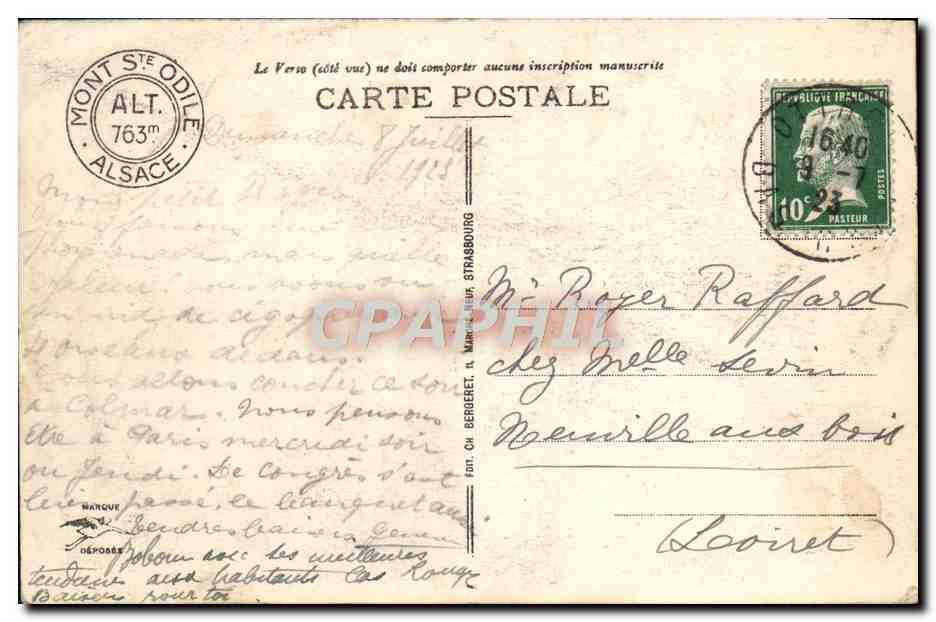 Le Verso (côté vue) ne doit comporter aucune inscription manuscrite
CARTE POSTALE
MONT STE ODILE
ALT.
763m
ALSACE
RÉPUBLIQUE FRANÇAISE
10c
PASTEUR
POSTES
16 40
9 -7
23
Dimanche 8 Juillet
1923
Mon petit
nous faisons une
promenade, mais quelle
nous avons vu
un nid de cigognes
4 oiseaux dedans.
Nous allons coucher ce soir
à Colmar. Nous pensons
être à Paris mercredi soir
ou Jeudi. Le congrès s'est
bien passé, le banquet aussi
Tendres baisers
avec ses meilleures
tendresses aux habitants
Baisers pour toi
MARQUE
DÉPOSÉE
ÉDIT. CH BERGERET, 11, MARCHÉ NEUF, STRASBOURG
CPAPHIL
Mr Roger Raffard
chez Melle Sevin
Neuville aux bois
(Loiret)